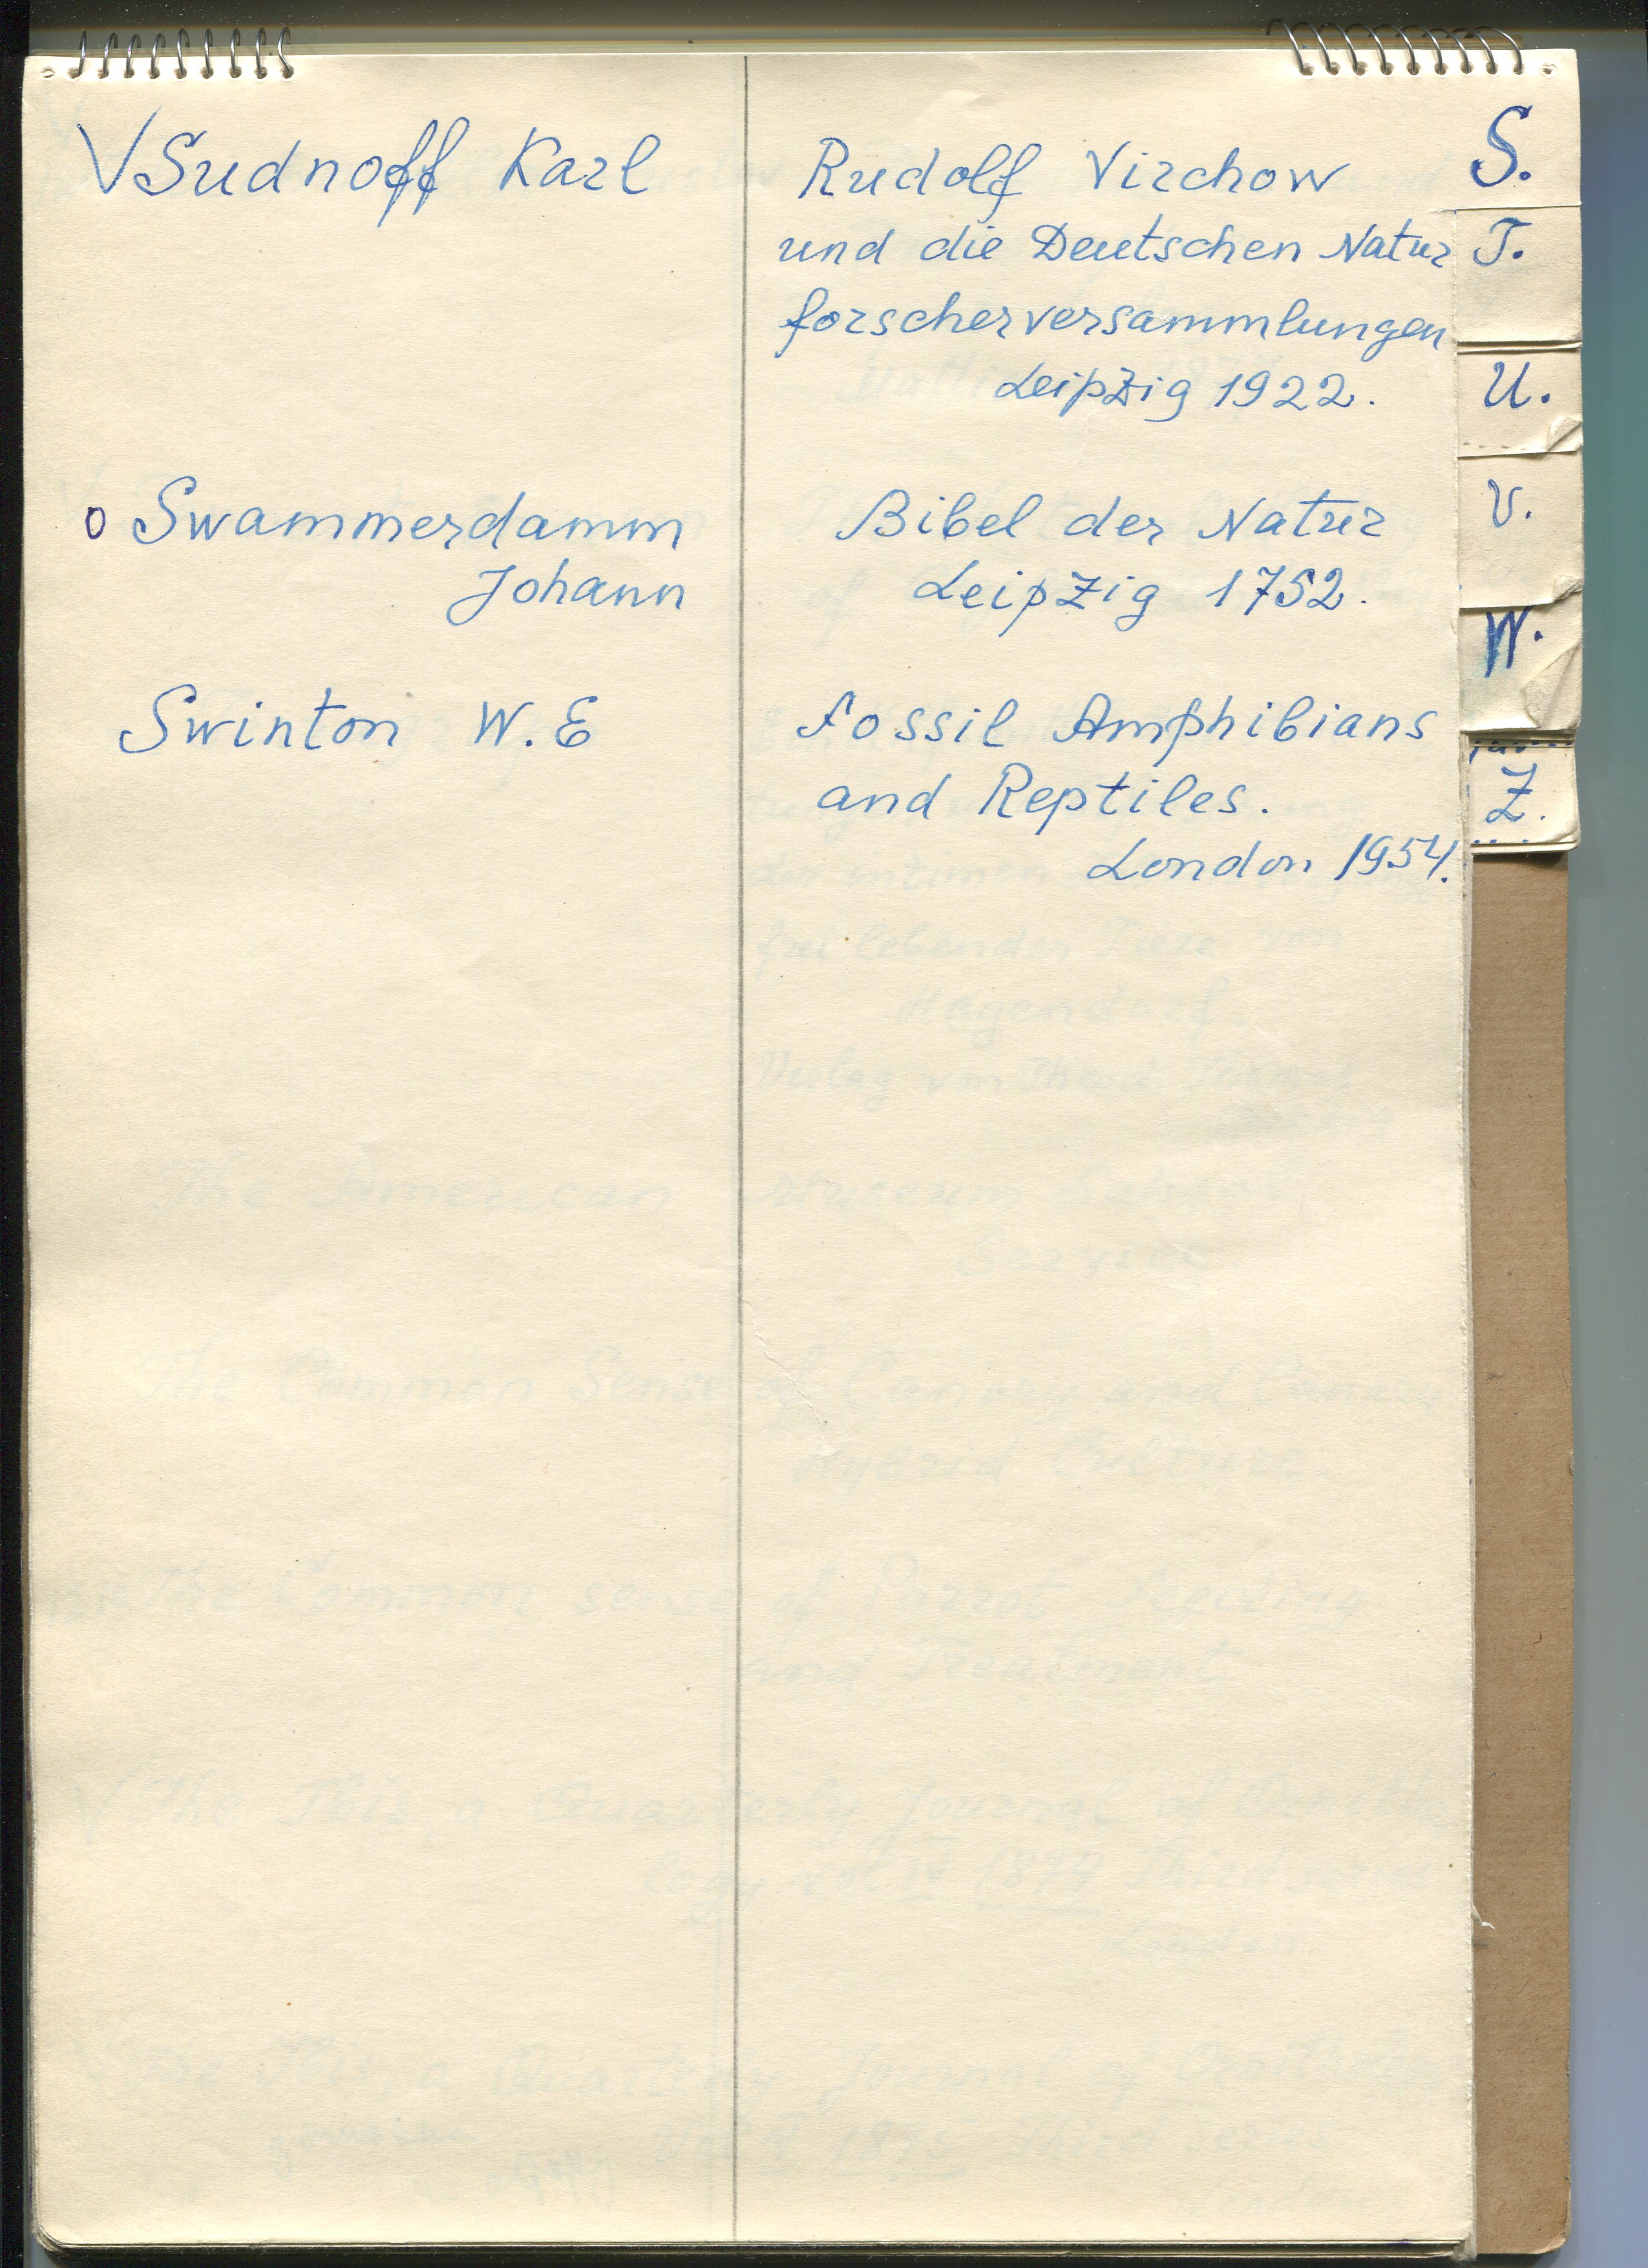 VSudnoff Karl
Rudolf Virchow
und die Deutschen Natur
forscherversammlungen
Leipzig 1922.
o Swammerdamm
Johann
Bibel der Natur
Leipzig 1752.
Swinton W. E
Fossil Amphibians
and Reptiles.
London 1954.
S.
T.
U.
V.
W.
Z.